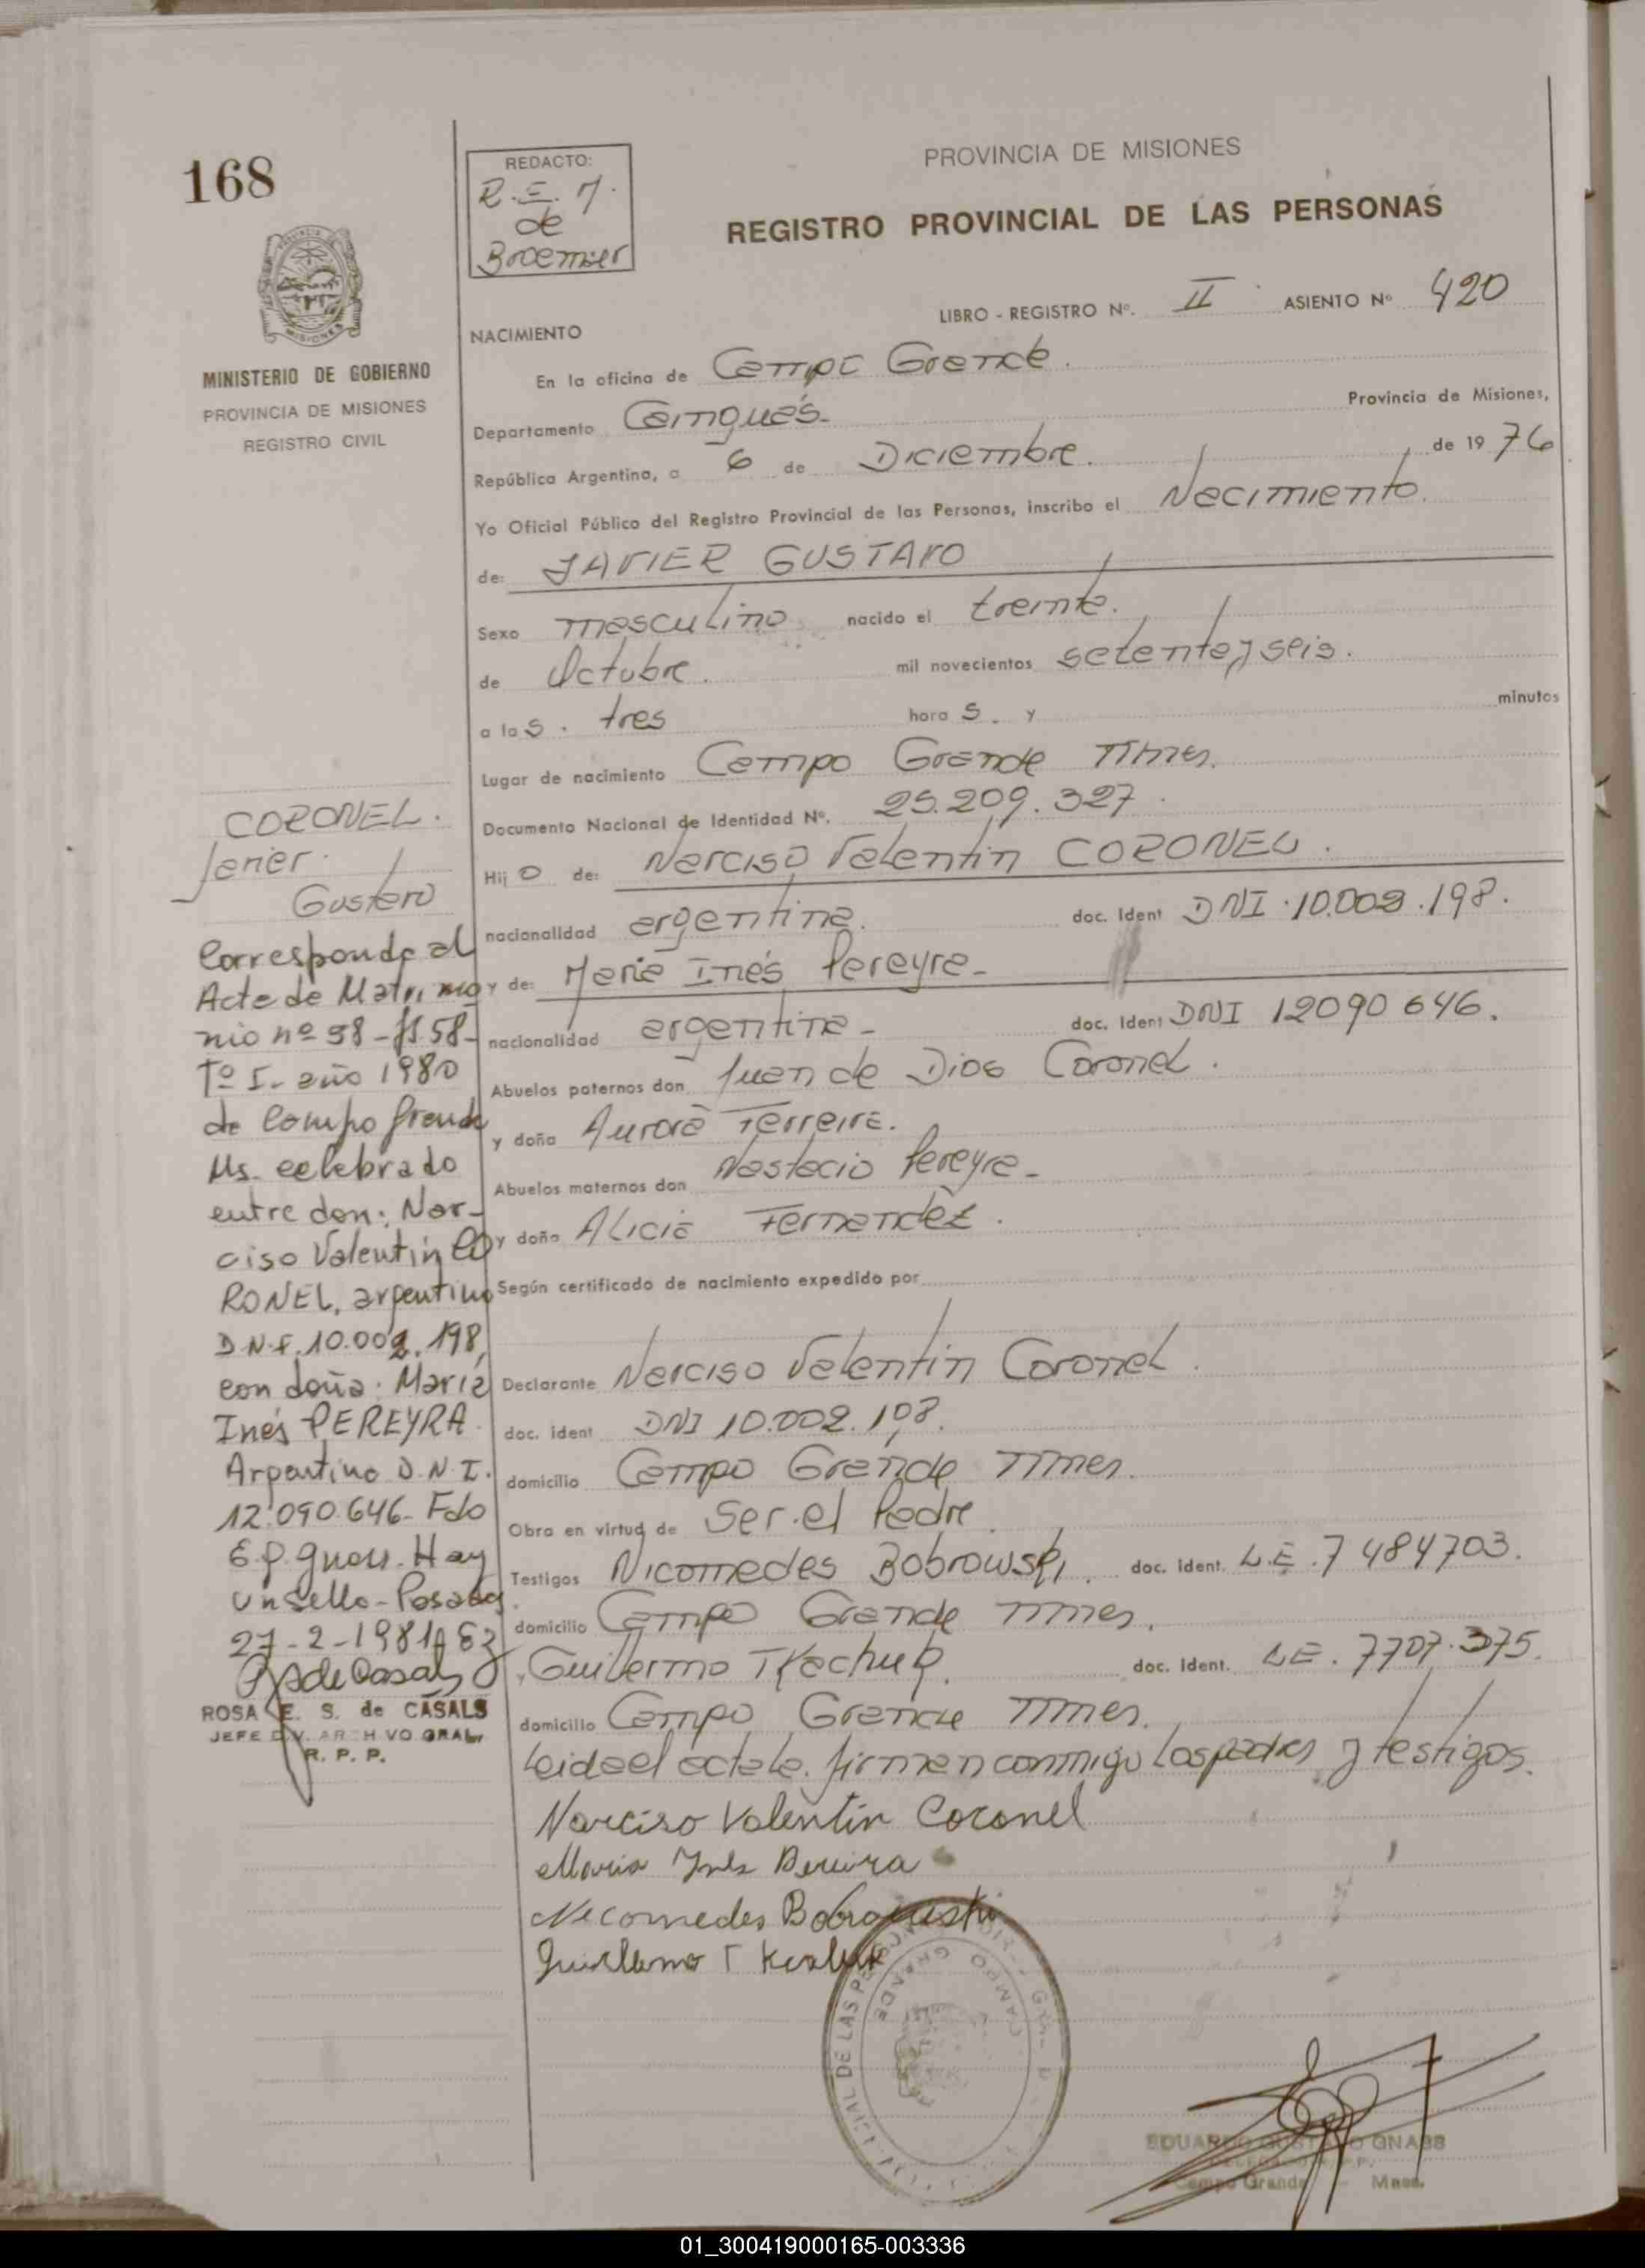 168
REDACTO:
R.E.M.
de
Broemser
PROVINCIA DE MISIONES
REGISTRO PROVINCIAL DE LAS PERSONAS
LIBRO - REGISTRO Nº. II ASIENTO Nº 420
MINISTERIO DE GOBIERNO
PROVINCIA DE MISIONES
REGISTRO CIVIL
NACIMIENTO
En la oficina de Campo Grande.
Departamento Cainguás- Provincia de Misiones,
República Argentina, a 6 de Diciembre. de 19 76
Yo Oficial Público del Registro Provincial de las Personas, inscribo el Nacimiento.
de: JAVIER GUSTAVO
Sexo masculino nacido el treinta.
de Octubre. mil novecientos setenta y seis.
a las. tres horas. y minutos
Lugar de nacimiento Campo Grande Mnes.
Documento Nacional de Identidad Nº. 25.209.327.
Hijo de: Narciso Valentín CORONEL.
nacionalidad argentina. doc. Ident DNI.10.002.198.
y de: María Inés Pereyra-
nacionalidad argentina- doc. Ident DNI 12090646.
Abuelos paternos don Juan de Dios Coronel.
y doña Aurora Ferreira.
Abuelos maternos don Nastacio Pereyra-
y doña Alicia Fernandez.
Según certificado de nacimiento expedido por
Declarante Narciso Valentín Coronel.
doc. ident DNI 10.002.198.
domicilio Campo Grande Mnes.
Obra en virtud de ser el Padre.
Testigos Nicomedes Bobrowski. doc. ident. L.E. 7484703.
domicilio Campo Grande Mnes.
y Guillermo Tkachuk. doc. ident. L.E. 7707.375.
domicilio Campo Grande Mnes.
Leida el acta la firman conmigo los padres y testigos.
Narciso Valentín Coronel
Maria Inés Pereira
Nicomedes Bobrowski
Guillermo T
CORONEL.
Javier
Gustavo
Corresponde al
Acta de Matrimo
nio nº 58-fs 58-
Tº I- año 1980
de Campo Grande
Ms. celebrado
entre don: Nar-
ciso Valentín CO
RONEL, argentino
D.N.I. 10.002.198,
con doña: María
Inés PEREYRA
Argentino D.N.I.
12.090.646- Fdo
E.G. Gnass. Hay
un sello-Posadas
27-2-1981
ROSA E. S. de CASALS
JEFE DIV. ARCHIVO GRAL.
R. P. P.
CAMPO GRANDE
EDUARDO GUSTAVO GNASS
DELEGADO R.P.P.
Campo Grande - Mnes.
01_300419000165-003336